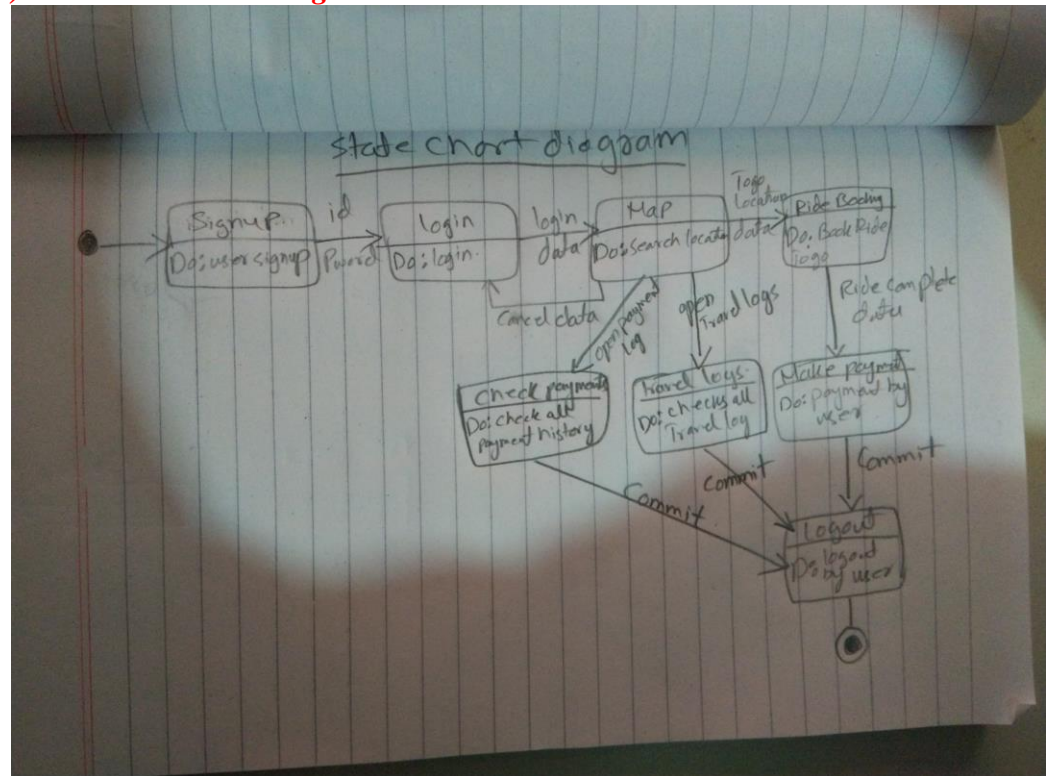 State chart diagram
Signup
Do: user signup
id
login
Do: login.
login
data
Map
Do: search locatn
Togo
Location
data
Ride
Do: Book Ride
Togo
Cancel data
open payment
log
open
Travel logs
Ride complete
data
check payments
Do: check all
payment history
Travel logs
Do: checks all
Travel log
Make payment
Do: payment by
user
Commit
Commit
Commit
Logout
Do: logout
by user